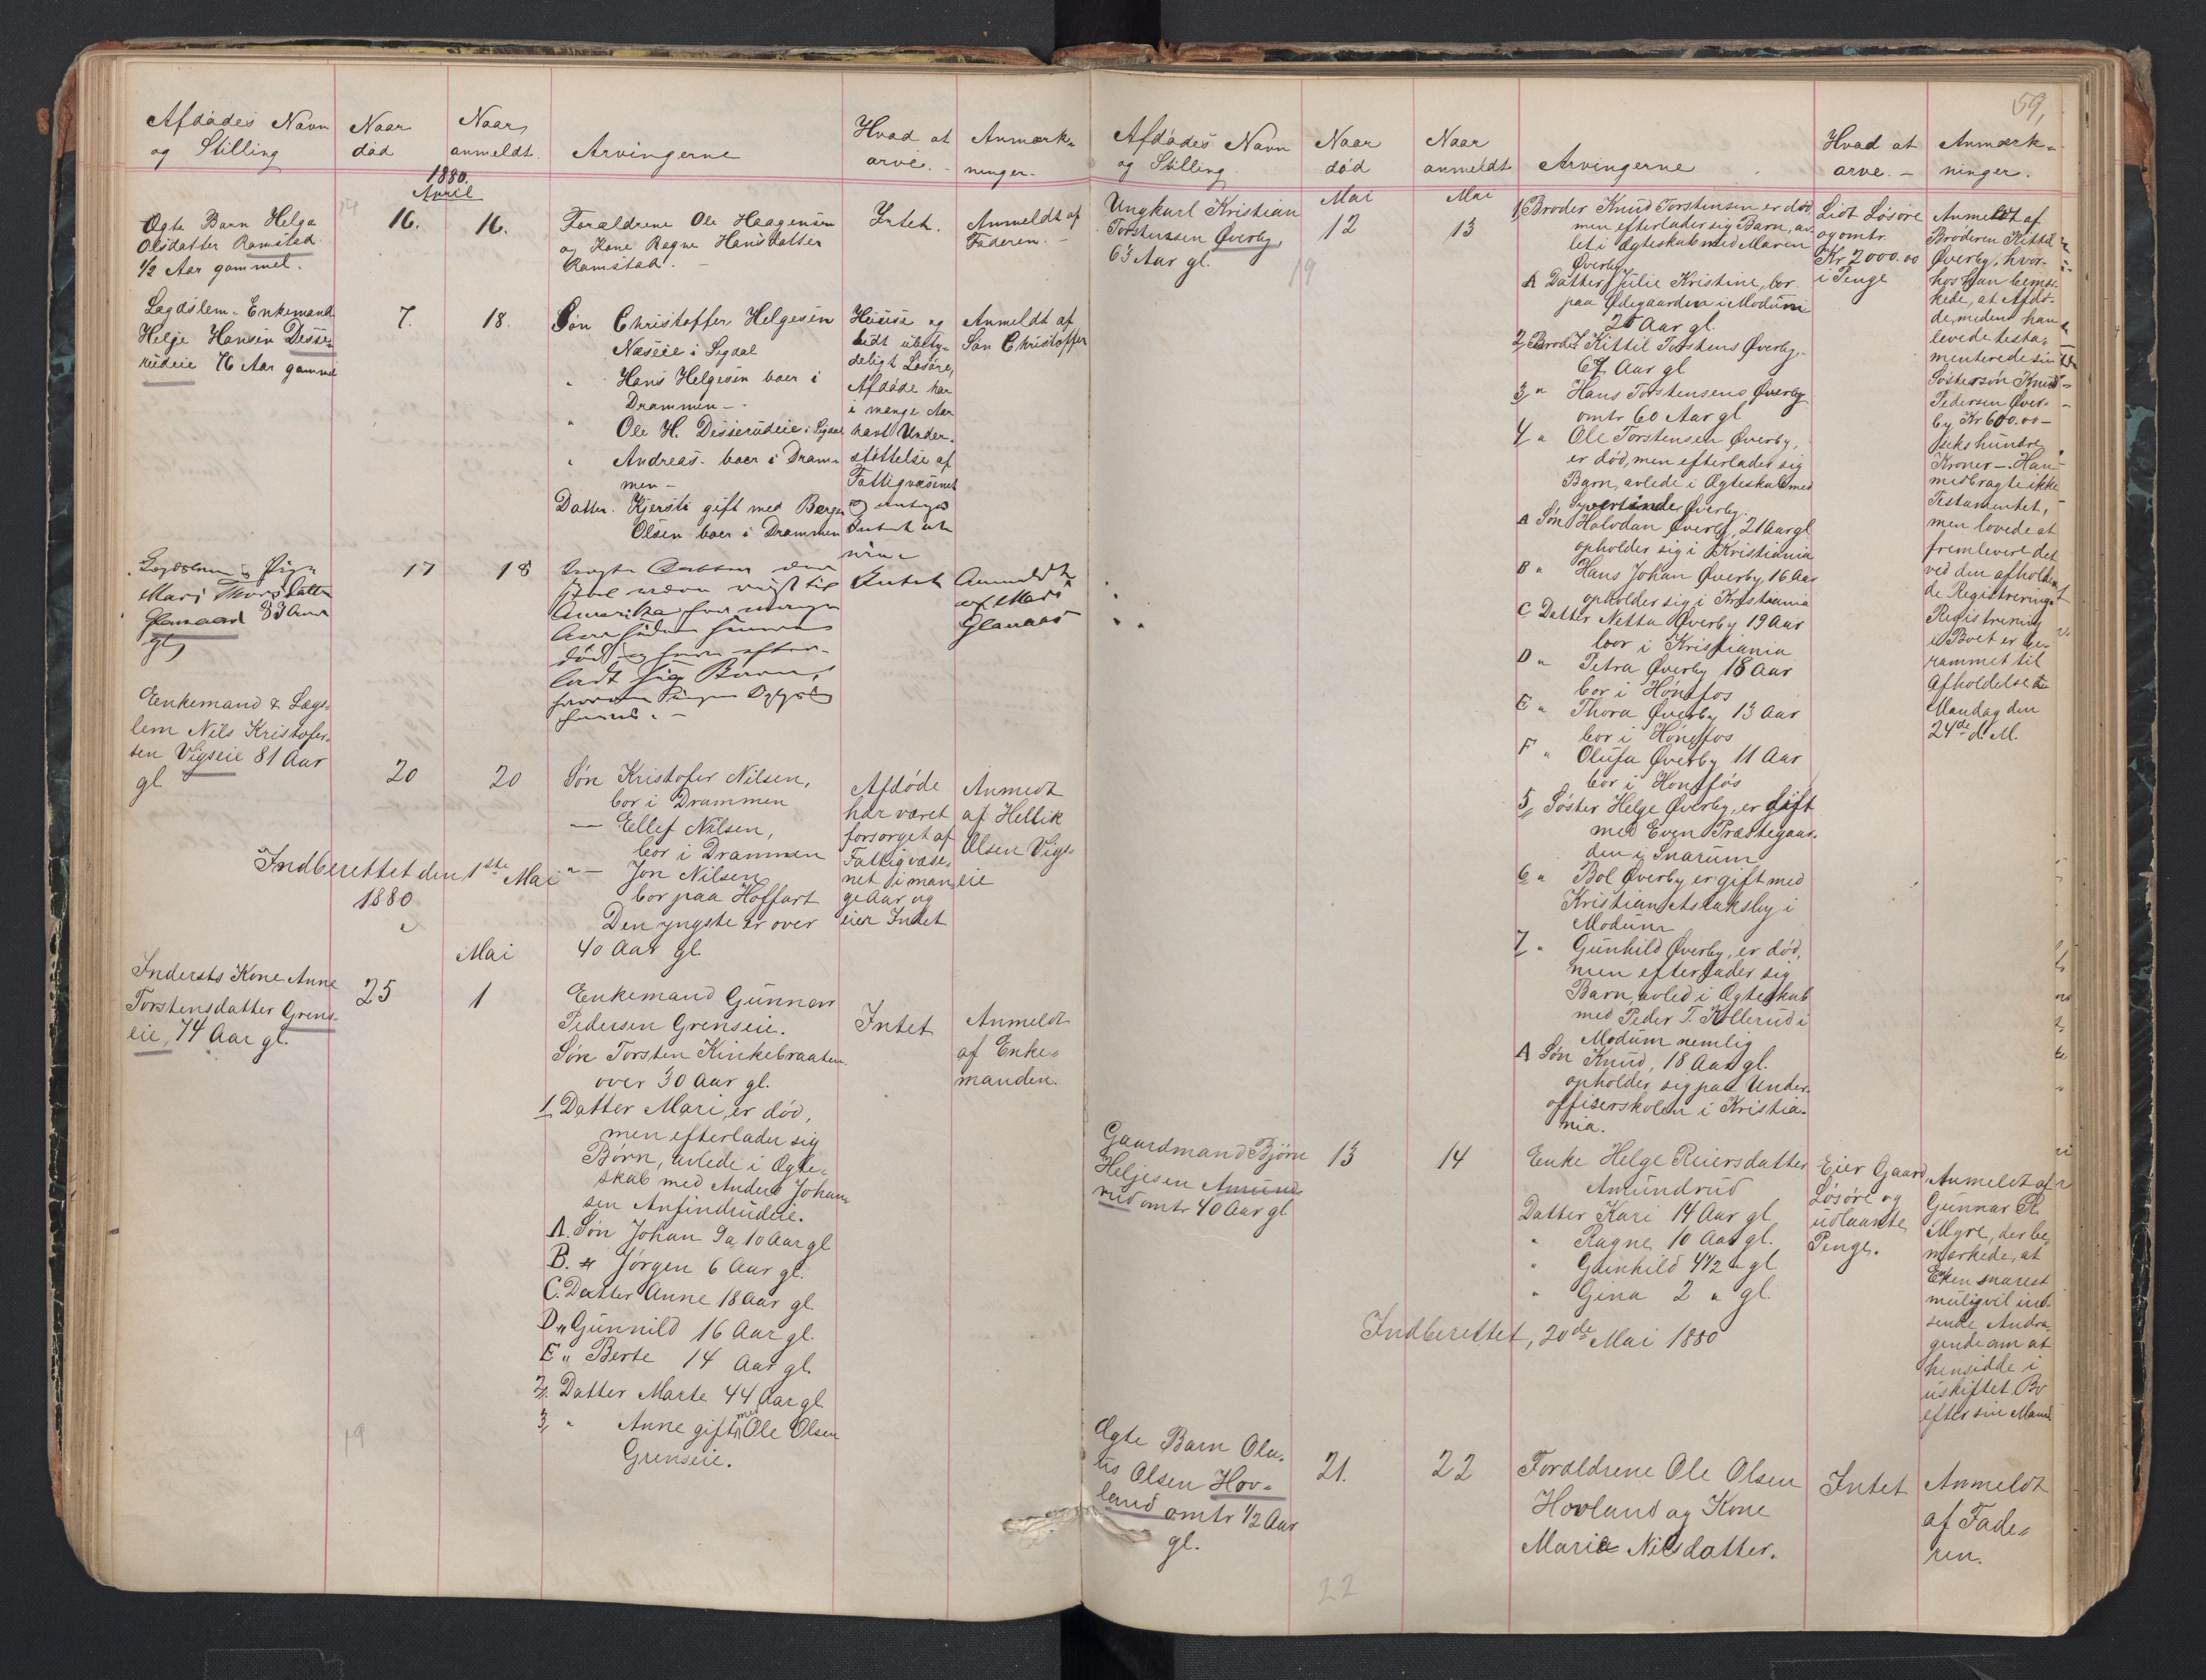 Afdødes Navn
og Stilling
Naar
død
Naar
anmeldt.
Arvingerne
Hvad at
arve. -
Anmærk-
ninger.
1880.
April
Ægte Barn Helga
Olsdatter Ramstad
1/2 Aar gammel.
16.
16.
Forældrene Ole Haagensen
og Kone Ragne Hansdatter
Ramstad. -
Intet.
Anmeldt af
Faderen. -
Lægdslem. Enkemand
Helje Hansen Disse-
rudeie 76 Aar gammel
7.
18.
Søn Christoffer Helgesen
Næseie i Sigdal
" Hans Helgesen boer i
Drammen -
" Ole H. Disserudeie i Sigdal
" Andreas. boer i Dram-
men -
Datter. Kjersti gift med Berger
Olsen boer i Drammen
Huuse og
lidt ubety-
deligt Løsøre,
Afdøde har
i mange Aar
havt Under-
støttelse af
Fattigvæsenet
og antages
Intet at
Anmeldt af
Søn Christoffer
Lægdslem Pige
Mari Thorsdatter
Glanaad 83 Aar
gl
17
18
Amerika for mange
død og have efter-
ladt sig Børn,
Intet
Anmeldt
af Mari
Glanaas
Enkemand & Lægs-
lem Nils Kristofer-
sen Vigseie 81 Aar
gl
20
20
Søn Kristofer Nilsen,
bor i Drammen
— Ellef Nilsen,
bor i Drammen
" — Jon Nilsen
bor paa Hoffart
Den yngste er over
40 Aar gl.
Afdøde
har været
forsørget af
Fattigvæse-
net i man-
ge Aar og
eier Intet
Anmedt
af Hellik
Olsen Vigs-
eie
Indberettet den 1ste Mai
1880
Mai
Indersts Kone Anne
Torstensdatter Grens-
eie, 74 Aar gl.
25
1
Enkemand Gunnar
Pedersen Grenseie.
Søn Torsten Kinkebraaten
over 30 Aar gl.
1, Datter Mari, er død,
men efterlader sig
Børn, avlede i Ægte-
skab med Anders Johan-
sen Anfindrudeie.
A. Søn Johan 9 a 10 Aar gl
B. " Jørgen 6 Aar gl.
C. Datter Anne 18 Aar gl
D " Gunnild 16 Aar gl.
E " Berte 14 Aar gl.
2, Datter Marte 44 Aar gl
3, " Anne gift med Ole Olsen
Grenseie.
Intet
Anmeldt
af Enke-
manden.
19
59,
Afdødes Navn
og Stilling.
Naar
død
Naar
anmeldt
Arvingerne
Hvad at
arve. -
Anmærk-
ninger.
Mai
Mai
Ungkarl Kristian
Torstensen Øverby,
63 Aar gl.
12
13
19
1, Broder Knud Torstensen er død
men efterlader sig Barn, av-
let i Ægteskab med Maren
Øverby
A Datter Julie Kristine, bor
paa Ødegaarden i Modum
25 Aar gl.
2, Broder Kittil Torstens Øverby
67 Aar gl
3, " Hans Torstensens Øverby
omtr 60 Aar gl
4, " Ole Torstensen Øverby,
er død, men efterlader sig
Børn, avlede i Ægteskab med
Øverby.
A Søn Halvdan Øverby, 21 Aar gl
opholder sig i Kristiania
B " Hans Johan Øverby 16 Aar
opholder sig i Kristiania
C Datter Netta Øverby 19 Aar
bor i Kristiania
D " Petra Øverby 18 Aar
bor i Hønefos
E " Thora Øverby 13 Aar
bor i Hønefos
F " Olufa Øverby 11 Aar
bor i Hønefos
5, Søster Helge Øverby, er gift
med Even Præstegaar-
den i Snarum
6, " Bol Øverby er gift med
Kristian Aslaksby i
Modum
7, " Gunhild Øverby, er død,
men efterlader sig
Barn, avled i Ægteskab
med Peder T. Kollerud i
Modum nemlig
A Søn Knud, 18 Aar gl.
opholder sig paa Under-
offiserskolen i Kristia-
nia.
Lidt Løsøre
og omtr.
Kr 2000.00
i Penge
Anmeldt af
Broderen Kittil
Øverby, hvor-
hos han bemær-
kede, at Afdø-
de, medens han
levede testa-
menterede sin
Søstersøn Knud
Pedersen Øver-
by Kr 600.00 -
seks hundre
Kroner -. Han
medbragte ikke
Testamentet,
men lovede at
fremlevere det
ved den afholden-
de Registrering
Registrering
i Boet er be-
rammet til
Afholdelse
Mandag den
24de d. M.
Gaardmand Bjørn
Heljesen Amund-
rud omtr 40 Aar gl
13
14
Enke Helge Reiersdatter
Amundrud
Datter Kari 14 Aar gl
" Ragne 10 Aar gl.
" Gunhild 4 1/2 " gl
" Gina 2 " gl.
Eier Gaard
Løsøre og
udlaante
Penge.
Anmeldt af
Gunnar Ol.
Myre, der be-
mærkede, at
Enken snarest
mulig vil ind-
sende Andra-
gende om at
hensidde i
uskiftet Bo
efter sin Mand
Indberettet, 20de Mai 1880
Ægte Barn Olu-
tis Olsen Hov-
land omtr 1/2 Aar
gl.
21.
22
Forældrene Ole Olsen
Hovland og Kone
Marie Nilsdatter.
Intet
Anmeldt
af Fade-
ren.
22